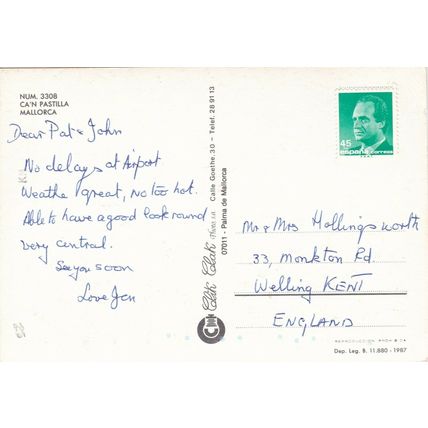 NUM. 330B
CA'N PASTILLA
MALLORCA
Dear Pat & John
No delays at Airport
Weathe great, no too hot.
Able to have a good look round
very central.
See you soon
Love Jen
Clik Clak Photo S.A. Calle Goethe, 30 - Telef. 28 91 13
07011 - Palma de Mallorca
45
ESPAÑA CORREOS
Mr & Mrs Hollingsworth
33, Monkton Rd.
Welling KENT
ENGLAND
Dep. Leg. B. 11.880 - 1987